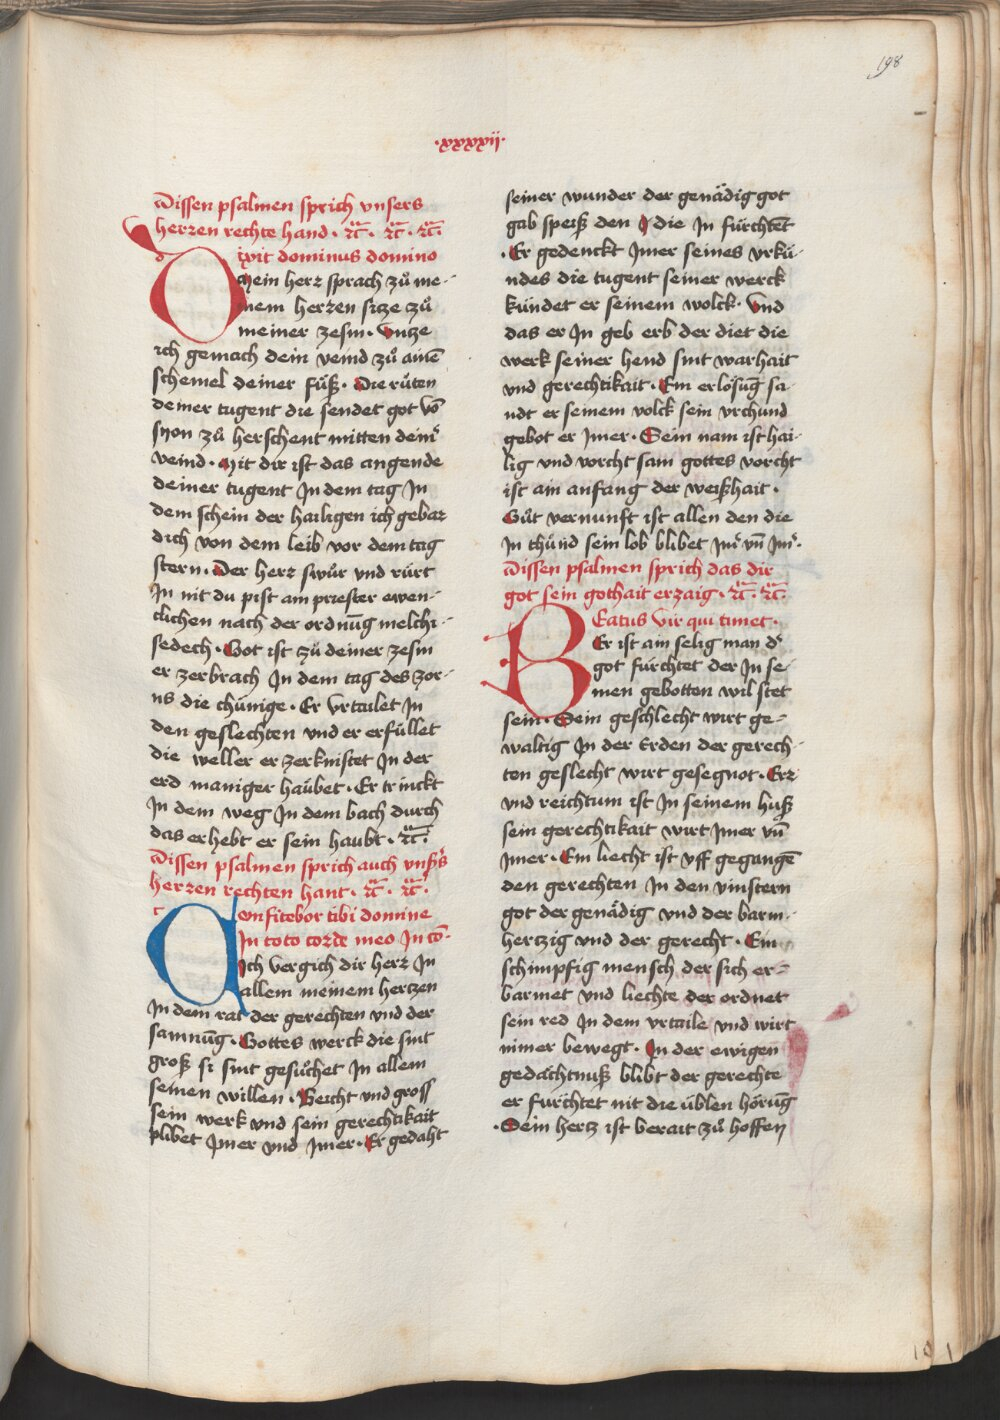 198
·xxxxii·
Dissen psalmen sprich vnsers
herzen rechte hand · ꝛc̄ · ꝛc̄ · ꝛc̄
Dixit dominus domino
Mein herz sprach zů me-
inem herzen sitze zů
meiner zesm · Vntze
ich gemach dein veind zů ainē
schemel deiner fůß · Die růten
deiner tugent die sendet got vō
syon zů herschent mitten deinr̄
veind · Mit dir ist das angende
deiner tugent In dem tag In
dem schein der hailigen ich gebar
dich von dem leib vor dem tag
stern · Der herz swůr vnd rürt
In nit du pist ain priester ewen-
clichen nach der ordnūg melchi-
sedech · Got ist zů deiner zesm
er zerbrach In dem tag des zor-
ns die chünige · Er Vrtailet In
den geslechten vnd er erfüllet
die weller er zerknistet In der
erd maniger haübet · Er trinckt
In dem weg In dem bach durch
das er hebt er sein haubt · ꝛc̄ ·
Dissen psalmen sprich auch vnßs̄
herzen rechten hant · ꝛc̄ · ꝛc̄ ·
Confitebor tibi domine
In toto corde meo In cō-
Ich Vergich dir herz In
allem meinem hertzen
In dem rat der gerechten vnd der
samnūg · Gottes werck die sint
groß si sint gesůchet In allem
seinen willen · Beicht vnd gross
sein werk vnd sein gerechtikait
plibet Imer vnd Imer · Er gedaht
seiner wunder der genädig got
gab speiß den I die In fürchtēt
· Er gedenckt Imer seines vrkü-
ndes die tugent seiner werck
kündet er seinem volck · Vnd
das er In geb erb der diet die
werk seiner hend sint warhait
vnd gerechtikait · Ein erlösūg sa-
ndt er seinem volck sein vrchund
gebot er Imer · Sein nam ist hai-
lig vnd vorcht sam gottes vorcht
ist ain anfang der weißhait ·
Gůt vernunft ist allen den die
In thůnd sein lob blibet Imr̄ vn̄ Imr̄ ·
Dissen psalmen sprich das dir
got sein gothait erzaig · ꝛc̄ · ꝛc̄
BEatus Vir qui timet ·
Er ist ain selig man dr̄
got fürchtet der In se-
inen gebotten wil stet
sein · Sein geschlecht wirt ge-
waltig In der Erden der gerech-
ten geslecht wirt gesegnot · Erz
vnd reichtum ist In seinem huß
sein gerechtikait wirt Imer vn̄
Imer · Ein liecht ist vff gegangē
den gerechten In den vinstern
got der genädig vnd der barm-
hertzig vnd der gerecht · Ein
schimpfig mensch der sich er-
barmet vnd liechte der ordnet
sein red In dem vrtaile vnd wirt
nimer bewegt · In der ewigen
gedächtnuß blibt der gerechte
er fürchtet nit die üblen hörūg
· Sein hertz ist berait zů hoffen